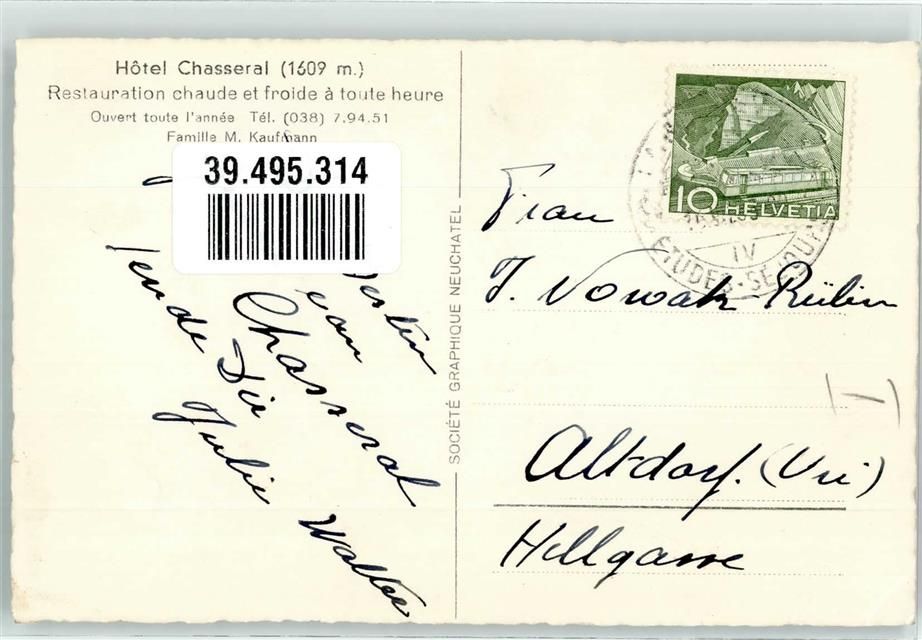 Hôtel Chasseral (1609 m.)
Restauration chaude et froide à toute heure
Ouvert toute l'année Tél. (038) 7.94.51
Famille M. Kaufmann
39.495.314
Chasseral
sende Dir
Julie Walter
SOCIÉTÉ GRAPHIQUE NEUCHATEL
10 HELVETIA
IV
ETUDES-SEJOUR
Frau
J. Nowak-Rübin
Altdorf. (Uri)
Hellgasse